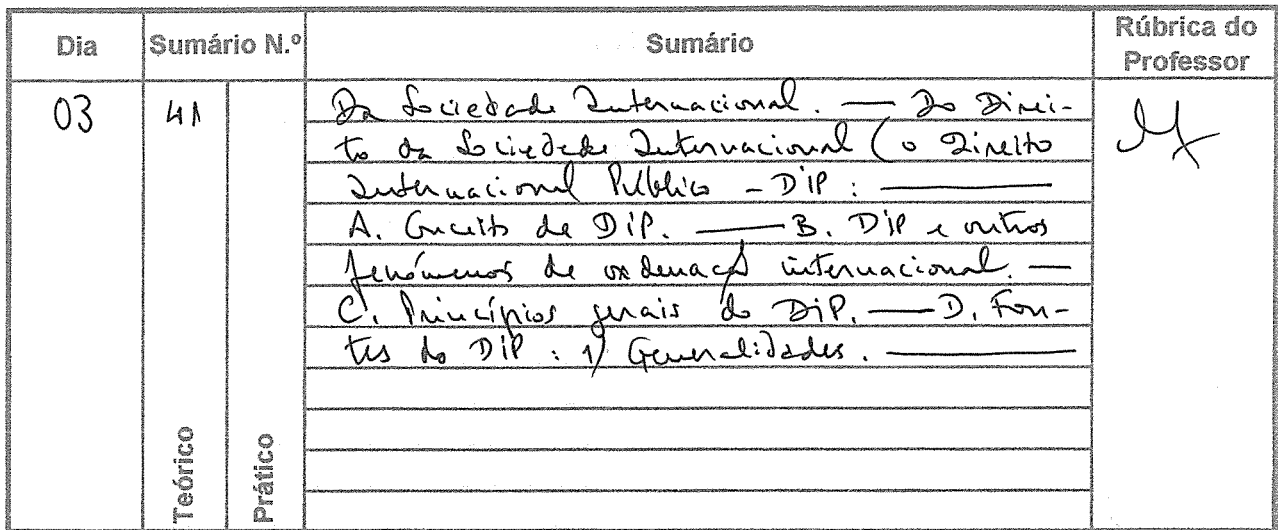 Dia Sumário N.º Sumário Rúbrica do Professor
03 41 Da Sociedade Internacional. — Do Direi-
to da Sociedade Internacional (o Direito
Internacional Público - DIP :
A. Conceito de DIP. — B. DIP e outros
fenómenos de ordenação internacional. —
C. Princípios gerais do DIP. — D. Fon-
tes do DIP : 1) Generalidades. —
Teórico
Prático